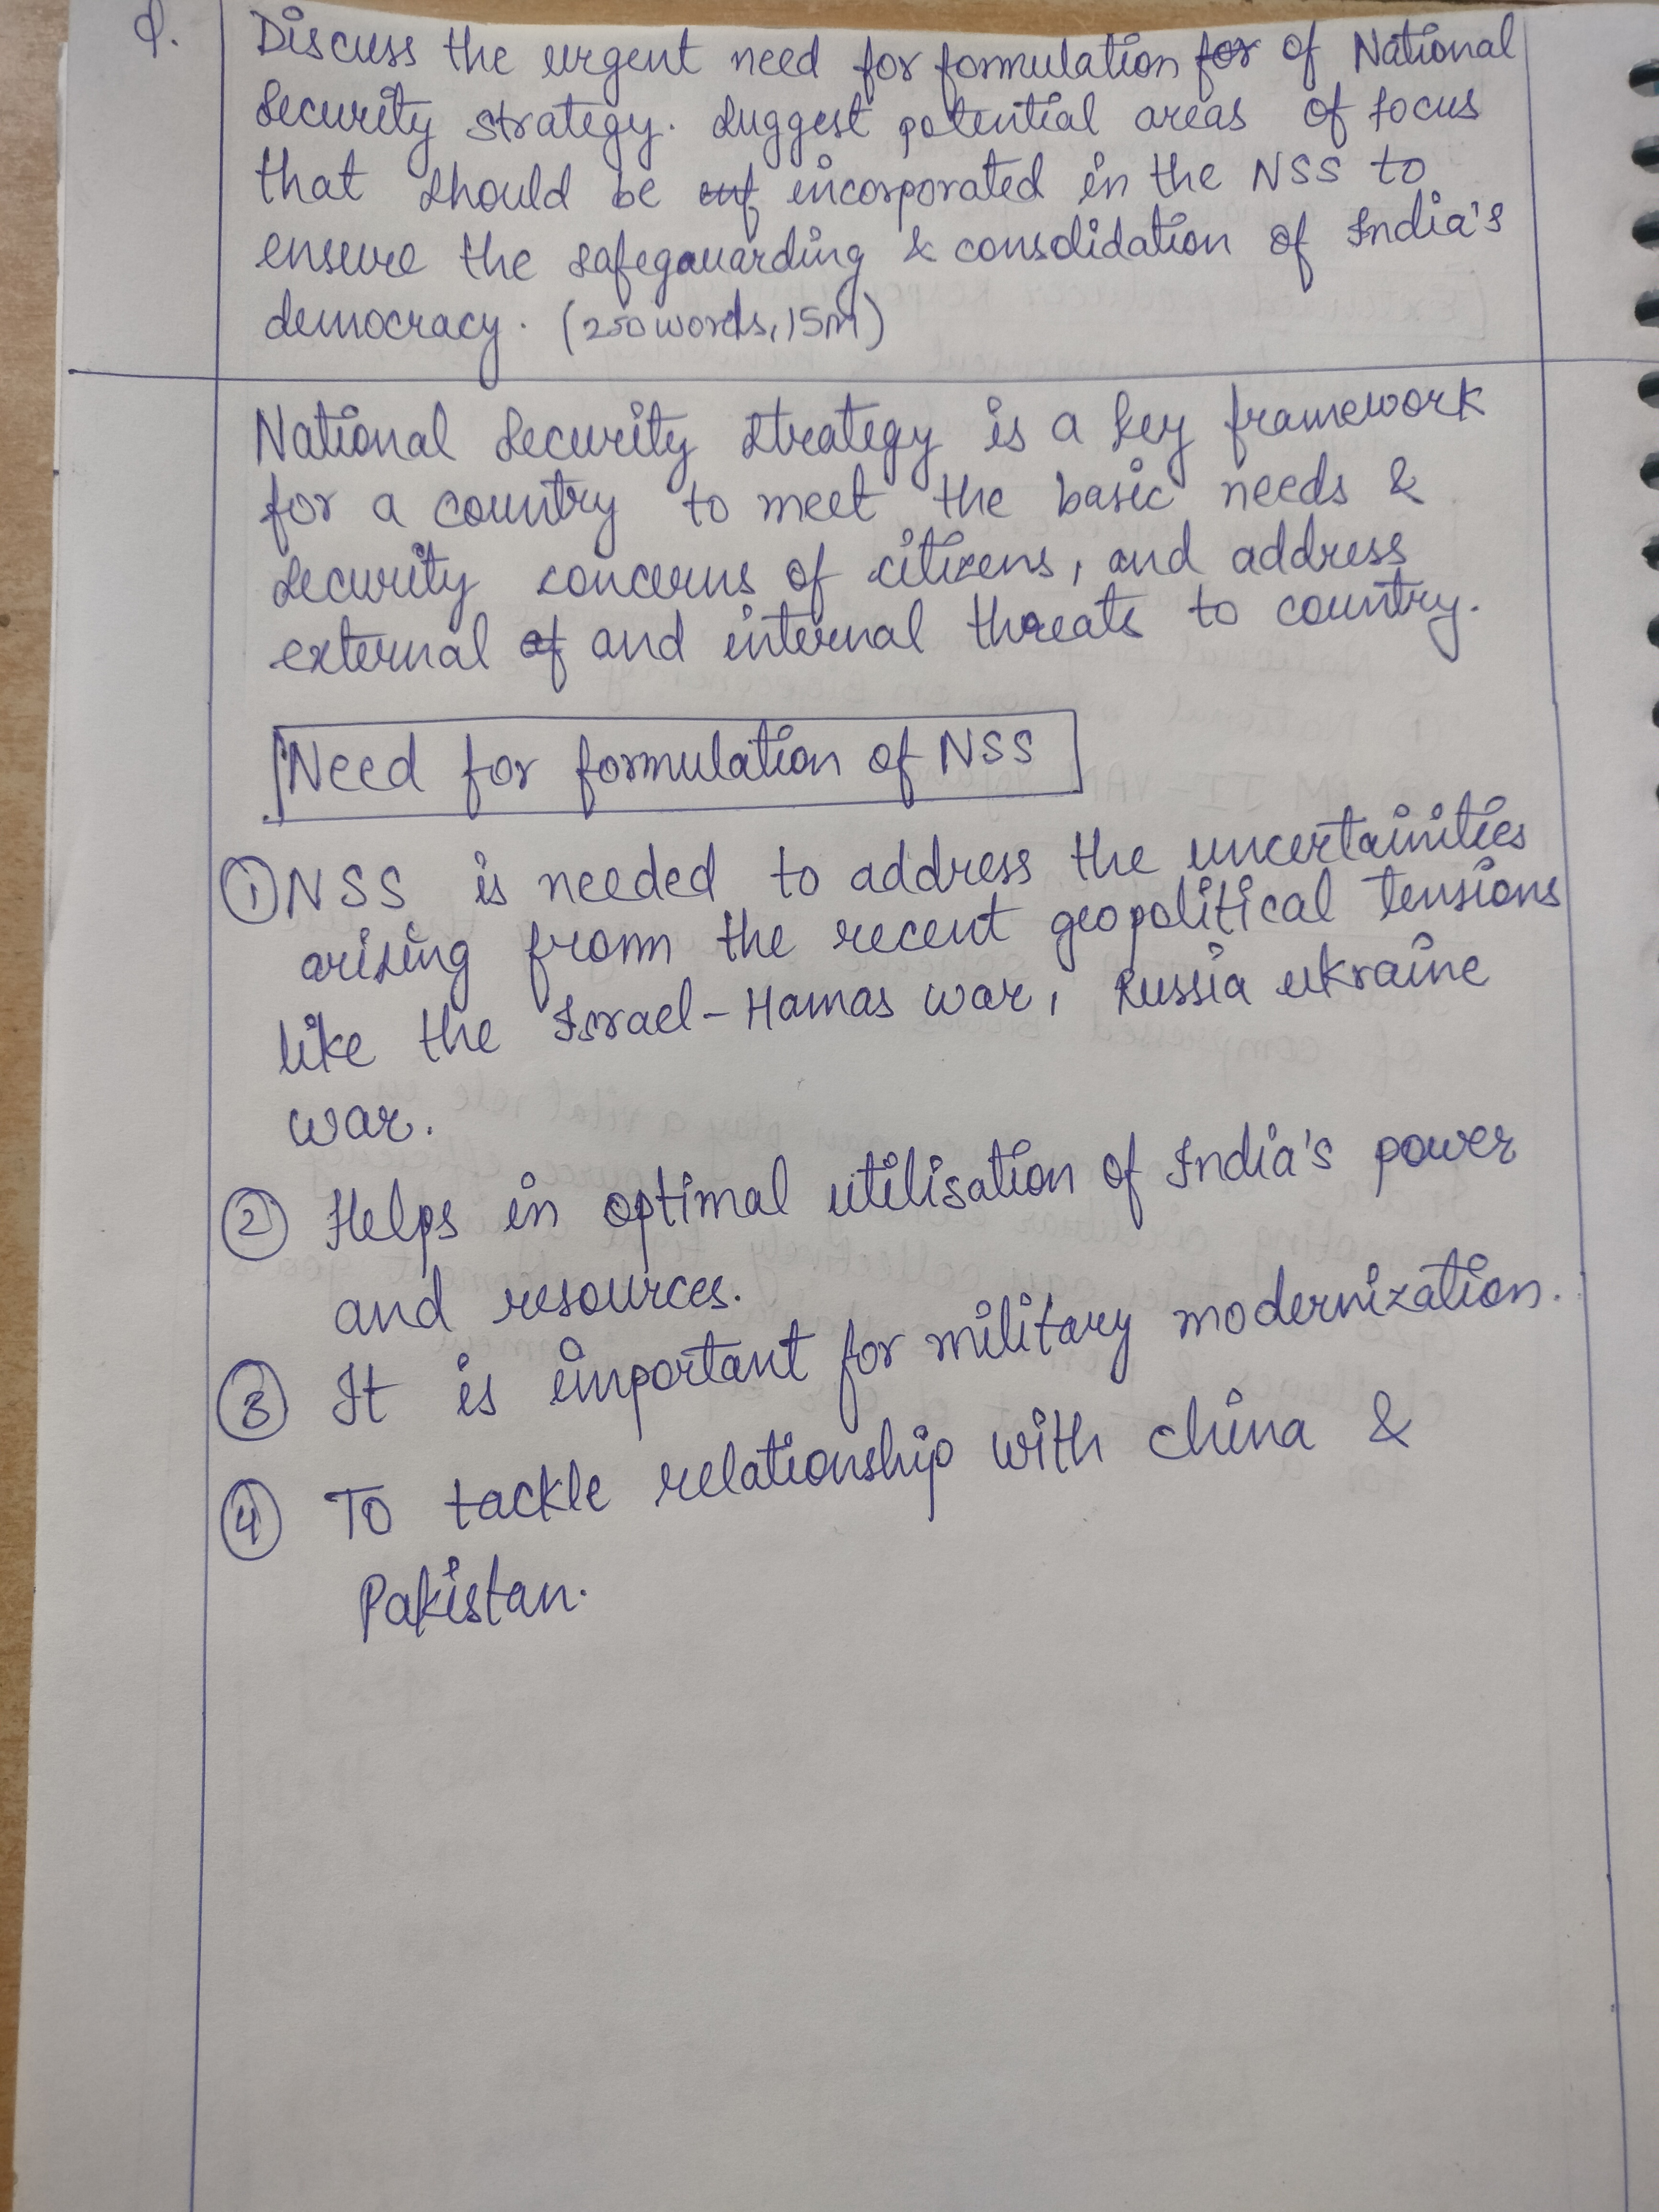 Q.
Discuss the urgent need for formulation for of National
Security strategy. Suggest potential areas of focus
that should be incorporated in the NSS to
ensure the safegauarding & consolidation of India's
democracy. (250 words, 15M)
National Security Strategy is a key framework
for a country to meet the basic needs &
security concerns of citizens, and address
external of and internal threats to country.
Need for formulation of NSS
① NSS is needed to address the uncertainities
arising from the recent geopolitical tensions
like the Israel-Hamas war, Russia ukraine
war.
② Helps in optimal utilisation of India's power
and resources.
③ It is important for military modernization.
④ To tackle relationship with china &
Pakistan.